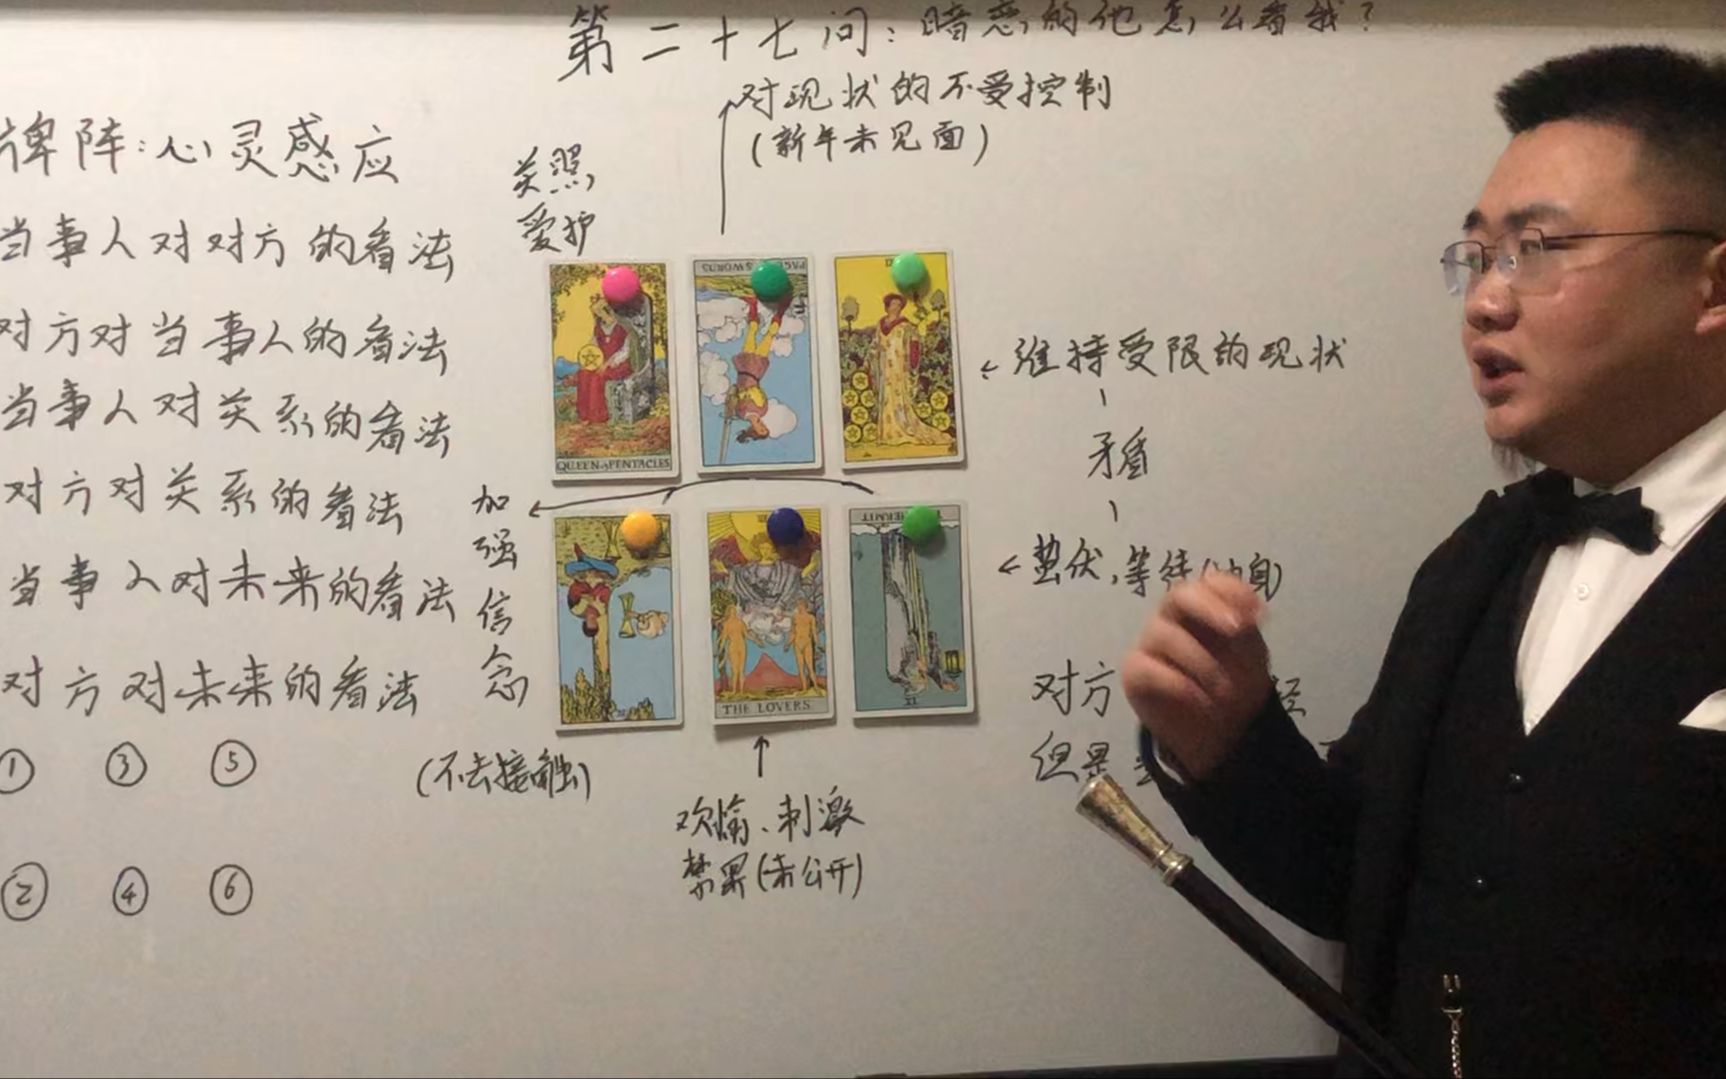 第二十七问：暗恋的他怎么看我？
对现状的不受控制
(新年未见面)
牌阵：心灵感应
当事人对对方的看法
对方对当事人的看法
当事人对关系的看法
对方对关系的看法
当事人对未来的看法
对方对未来的看法
① ③ ⑤
② ④ ⑥
关照
爱护
QUEEN of PENTACLES
PAGE of SWORDS
IX
维持受限的现状
矛盾
加强信念
(不去接触)
III
THE LOVERS
HERMIT
IX
蛰伏,等待
欢愉、刺激
禁果(未公开)
对方
但是